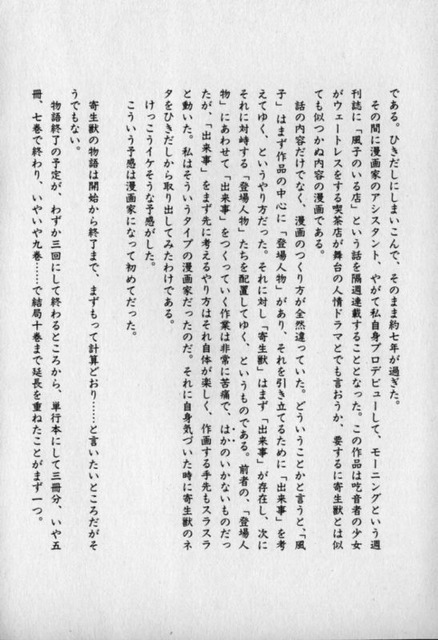 である。ひきだしにしまいこんで、そのまま約七年が過ぎた。
その間に漫画家のアシスタント、やがて私自身プロデビューして、モーニングという週
刊誌に「風子のいる店」という話を隔週連載することとなった。この作品は吃音者の少女
がウェートレスをする喫茶店が舞台の人情ドラマとでも言おうか、要するに寄生獣とは似
ても似つかぬ内容の漫画である。
話の内容だけでなく、漫画のつくり方が全然違っていた。どういうことかと言うと、「風
子」はまず作品の中心に「登場人物」があり、それを引き立てるために「出来事」を考
えてゆく、というやり方だった。それに対し「寄生獣」はまず「出来事」が存在し、次に
それに対峙する「登場人物」たちを配置してゆく、というものである。前者の、「登場人
物」にあわせて「出来事」をつくっていく作業は非常に苦痛で、はかのいかないものだっ
たが、「出来事」をまず先に考えるやり方はそれ自体が楽しく、作画する手先もスラスラ
と動いた。私はそういうタイプの漫画家だったのだ。それに自身気づいた時に寄生獣のネ
タをひきだしから取り出してみたわけである。
けっこうイケそうな予感がした。
こういう予感は漫画家になって初めてだった。
寄生獣の物語は開始から終了まで、まずもって計算どおり……と言いたいところだがそ
うでもない。
物語終了の予定が、わずか三回にして終わるところから、単行本にして三冊分、いや五
冊、七巻で終わり、いやいや九巻……で結局十巻まで延長を重ねたことがまず一つ。